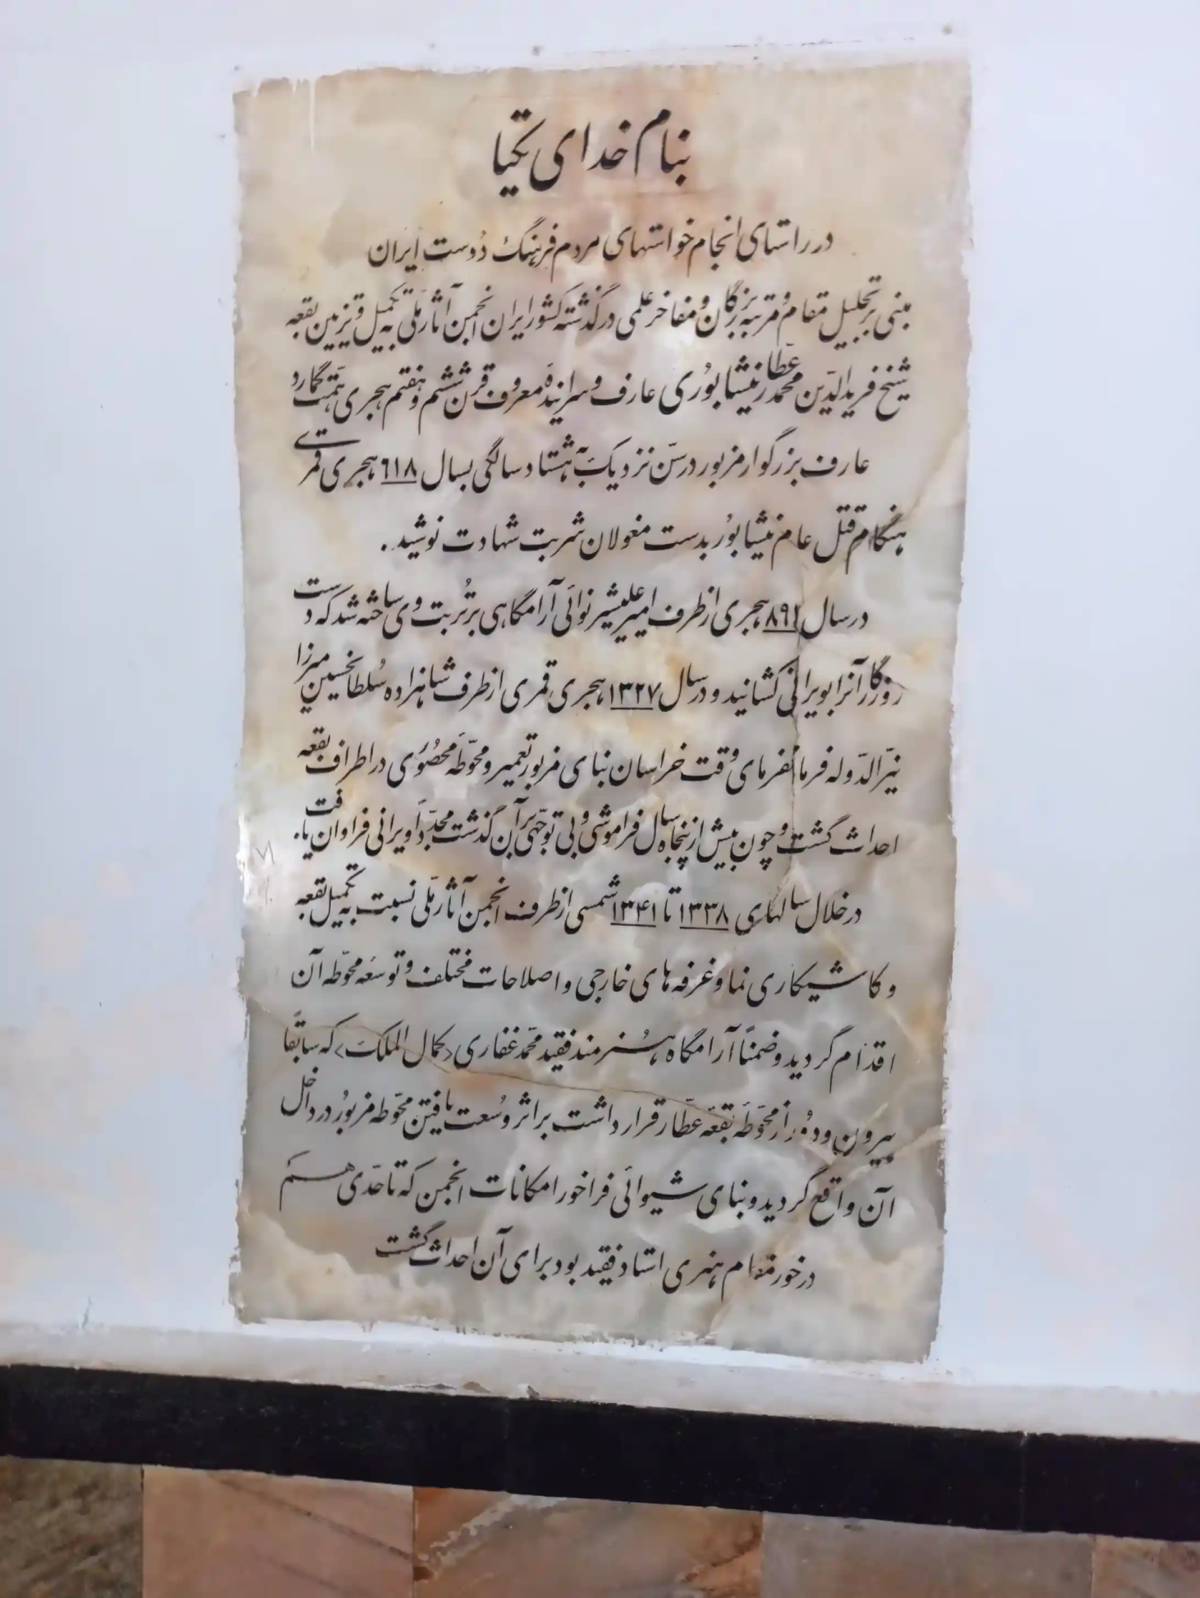 بنام خدای یکتا
در راستای انجام خواستهای مردم فرهنگ دوست ایران
مبنی بر تجلیل مقام و مرتبه بزرگان و مفاخر علمی در گذشته کشور ایران انجمن آثار ملّی به تکمیل و تزیین بقعه
شیخ فریدالدّین محمد عطّار نیشابوری عارف و سراینده معروف قرن ششم و هفتم هجری همّت گمارد
عارف بزرگوار مزبور در سنّ نزدیک به هشتاد سالگی بسال ۶۱۸ هجری قمری
هنگام قتل عام نیشابور بدست مغولان شربت شهادت نوشید.
در سال ۸۹۱ هجری از طرف امیر علیشیر نوائی آرامگاهی بر تُربت وی ساخته شد که دست
روزگار آنرا بویرانی کشانید و در سال ۱۳۲۷ هجری قمری از طرف شاهزاده سُلطانحسین میرزا
نیّرالدّوله فرمانفرمای وقت خراسان بنای مزبور تعمیر و محوّطه محصُوری در اطراف بقعه
احداث گشت و چون بیش از پنجاه سال فراموشی و بی توجّهی بر آن گذشت مجدّداً ویرانی فراوان یافت.
در خلال سالهای ۱۳۳۸ تا ۱۳۴۱ شمسی از طرف انجمن آثار ملّی نسبت به تکمیل بقعه
و کاشیکاری نما و غرفه های خارجی و اصلاحات مختلف و توسعه محوّطه آن
اقدام گردید و ضمناً آرامگاه هُنرمند فقید محمّد غفاری <کمال الملک> که سابقاً
بیرون و دُور از محوّطه بقعه عطّار قرار داشت بر اثر وسُعت یافتن محوّطه مزبُور در داخل
آن واقع گردید و بنای شیوائی فراخور امکانات انجمن که تا حدّی هم
در خور مقام هنری استاد فقید بود برای آن احداث گشت